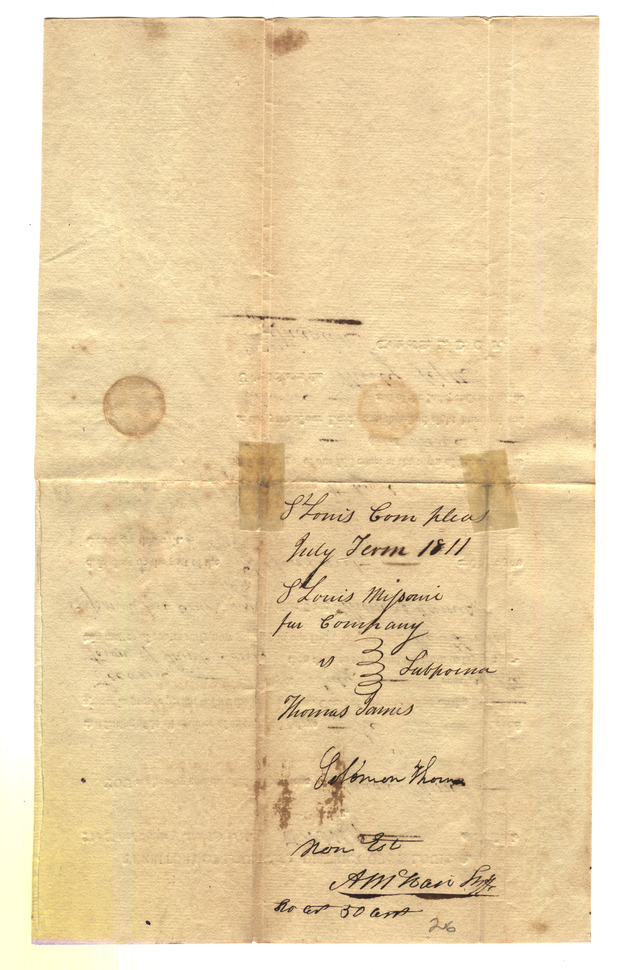 St Louis Com pleas
July Term 1811
St Louis Missouri
fur Company
vs Subpoena
Thomas James
Solomon Thorn
Non Est
A McNair Shff.
50
26